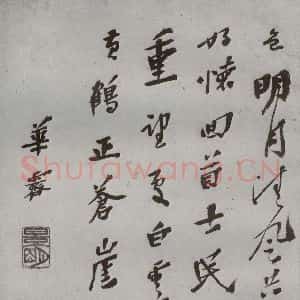 色明月清風共
好懷回首士民
重望更白雲
黄鶴正蒼崖
華蓥
Shufawang.CN